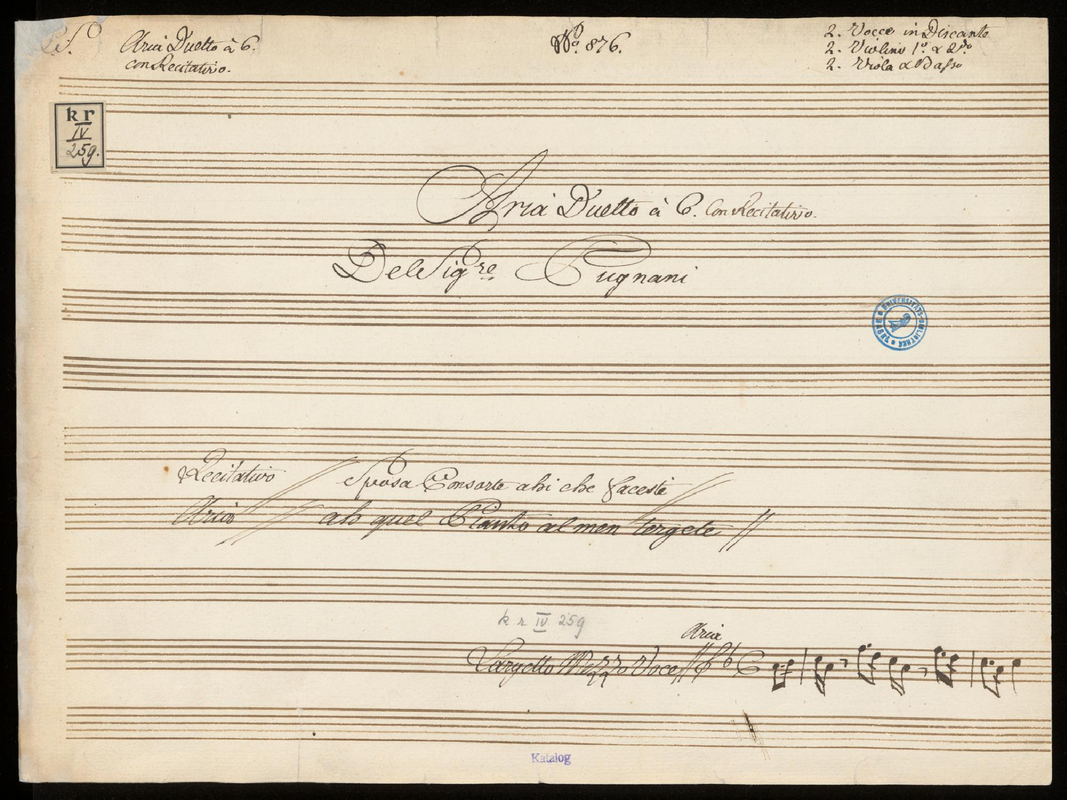 Aria Duetto à 6.
con Recitativo.
No. 876.
2. Vocce in Discanto
2. Violino 1o. & 2do
2. Viola & Basso
kr
IV
259.
Aria Duetto à 6. Con Recitativo.
Del Sigre. Pugnani
UNIVERSITÄTS-BIBLIOTHEK
Recitativo // Sposa Consorte ahi che faceste //
Aria // ah quel Pianto al men tergete //
k r IV 259
Aria
Largetto Mezzo Voce //
Katalog